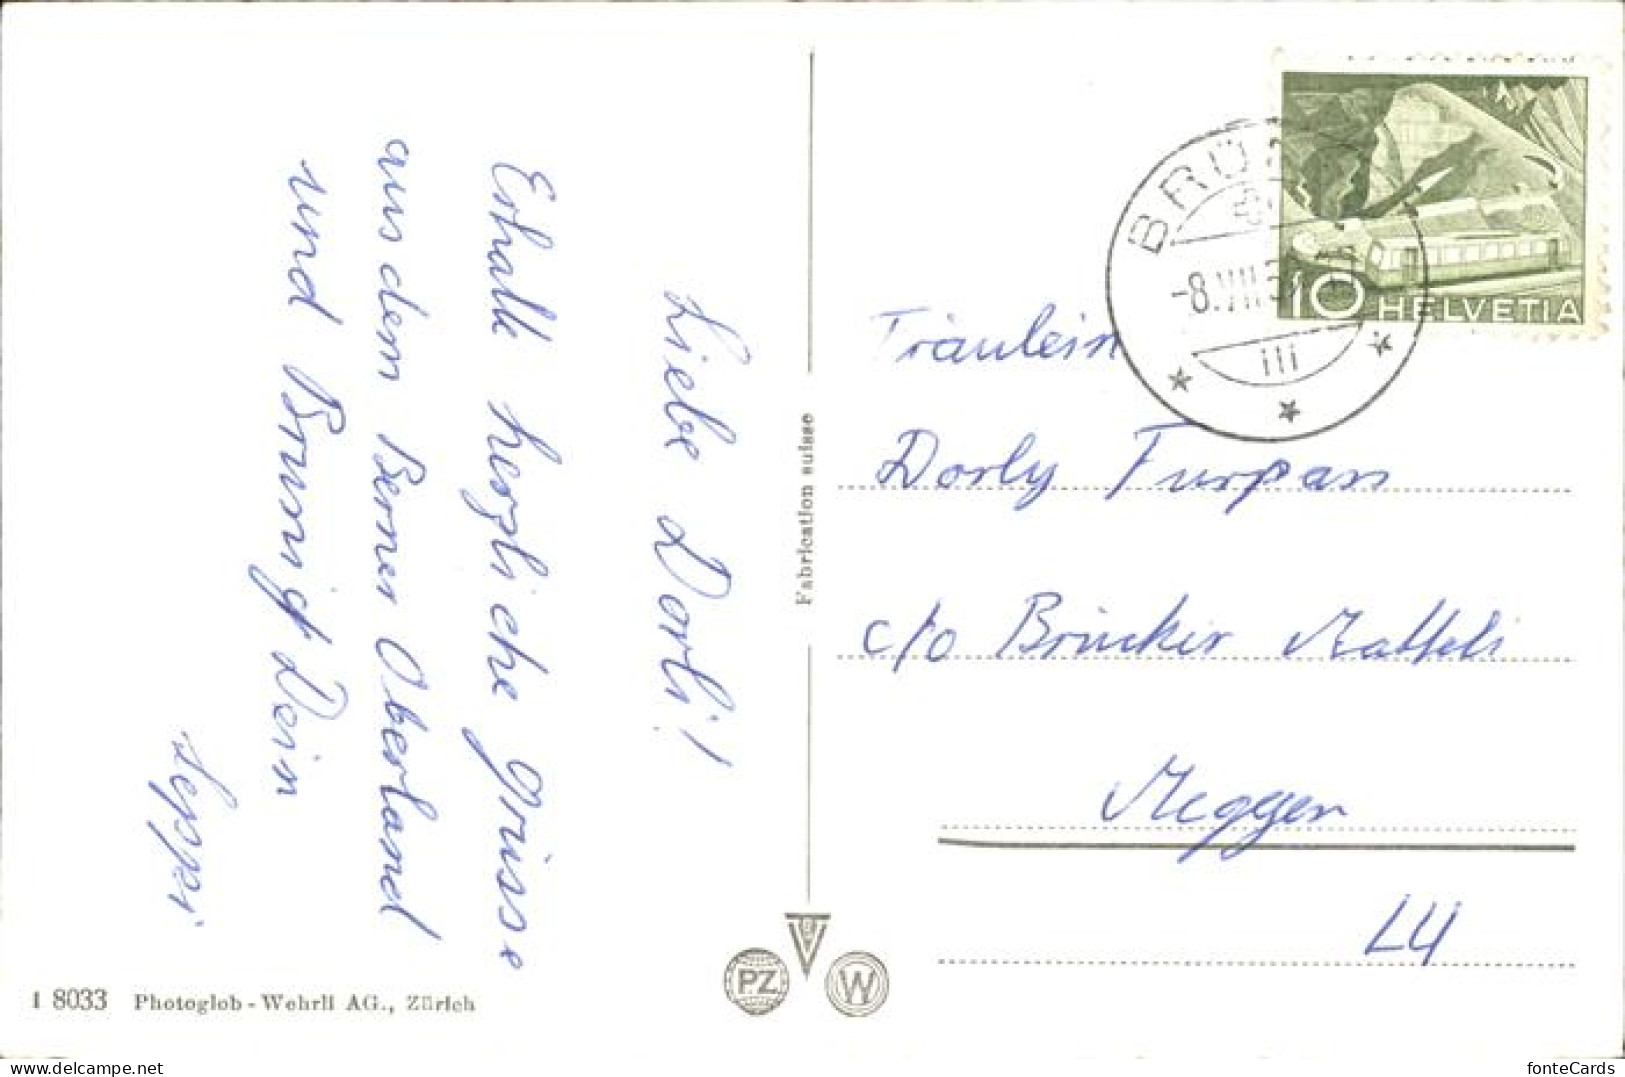 Liebe Dorli!
Erhalte herzliche Grüsse
aus dem Berner Oberland
und Brünig Dein
Seppi
Fräulein
Dorly Furpass
c/o Brücker
Meggen
LU
BRÜ
-8.VII.5
10 HELVETIA
Fabrication suisse
PZ
W
I 8033 Photoglob-Wehrli AG., Zürich
www.delcampe.net
fonteCards